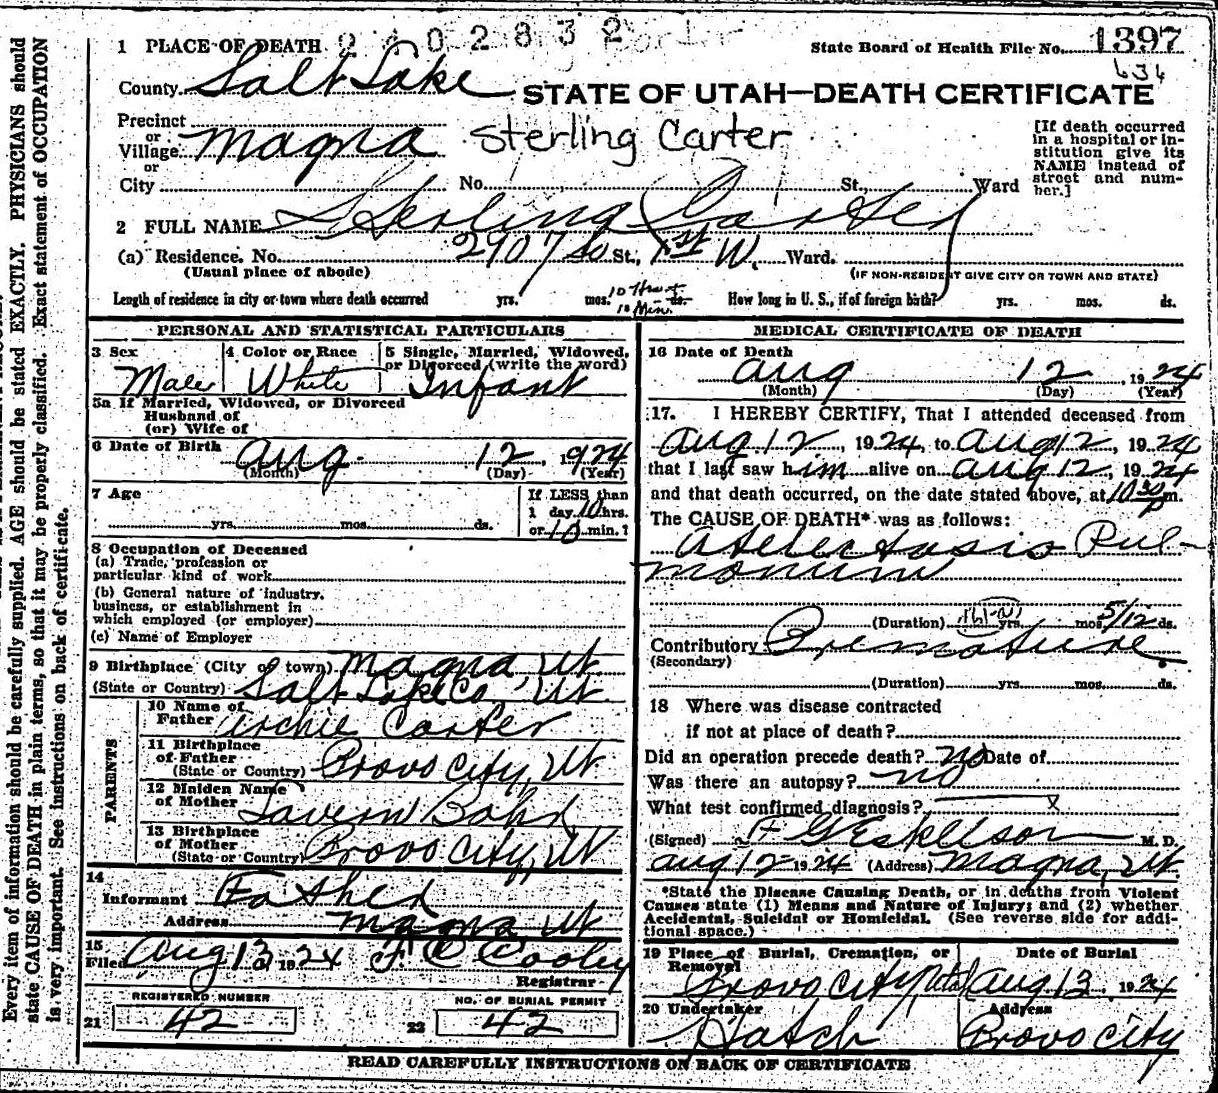 2402832
1 PLACE OF DEATH
State Board of Health File No. 1397
634
County Salt Lake
STATE OF UTAH—DEATH CERTIFICATE
Precinct
or
Village Magna
Sterling Carter
or
City No. St., Ward
[If death occurred
in a hospital or in-
stitution give its
NAME instead of
street and num-
ber.]
2 FULL NAME Sterling Carter
(a) Residence. No. 2907 So St., 1st W. Ward.
(Usual place of abode)
(IF NON-RESIDENT GIVE CITY OR TOWN AND STATE)
Length of residence in city or town where death occurred yrs. mos. 10 Hrs. ds. How long in U. S., if of foreign birth? yrs. mos. ds.
10 Min.
PERSONAL AND STATISTICAL PARTICULARS
3 Sex 4 Color or Race 5 Single, Married, Widowed,
or Divorced (write the word)
Male White Infant
5a If Married, Widowed, or Divorced
Husband of
(or) Wife of
6 Date of Birth Aug. 12, 1924
(Month) (Day) (Year)
7 Age If LESS than
1 day 10 hrs.
yrs. mos. ds. or 10 min.?
8 Occupation of Deceased
(a) Trade, profession or
particular kind of work
(b) General nature of industry,
business, or establishment in
which employed (or employer)
(c) Name of Employer
9 Birthplace (City or town) Magna, Ut.
(State or Country) Salt Lake Co, Ut.
PARENTS
10 Name of
Father Archie Carter
11 Birthplace
of Father
(State or Country) Provo City, Ut
12 Maiden Name
of Mother
13 Birthplace
of Mother
(State or Country) Provo City, Ut
14
Informant Father
Address Magna Ut
15
Filed Aug 13 1924 F. C. Cooley
Registrar
REGISTERED NUMBER NO. OF BURIAL PERMIT
21 42 22 42
MEDICAL CERTIFICATE OF DEATH
16 Date of Death
Aug 12, 1924
(Month) (Day) (Year)
17. I HEREBY CERTIFY, That I attended deceased from
Aug 12, 1924, to Aug 12, 1924
that I last saw him alive on Aug 12, 1924
and that death occurred, on the date stated above, at 10 30 P m.
The CAUSE OF DEATH* was as follows:
Atelectasis Pul-
monum
(Duration) yrs. mos. 5/12 ds.
Contributory Premature.
(Secondary)
(Duration) yrs. mos. ds.
18 Where was disease contracted
if not at place of death?
Did an operation precede death? No Date of
Was there an autopsy? No
What test confirmed diagnosis? X
(Signed) F G Eskelson M. D.
Aug 12 1924 (Address) Magna, Ut.
*State the Disease Causing Death, or in deaths from Violent
Causes state (1) Means and Nature of Injury; and (2) whether
Accidental, Suicidal or Homicidal. (See reverse side for addi-
tional space.)
19 Place of Burial, Cremation, or
Removal
Date of Burial
Provo City, Utah Aug 13, 1924
20 Undertaker Address
Hatch Provo City
READ CAREFULLY INSTRUCTIONS ON BACK OF CERTIFICATE
Every item of information should be carefully supplied. AGE should be stated EXACTLY. PHYSICIANS should
state CAUSE OF DEATH in plain terms, so that it may be properly classified. Exact statement of OCCUPATION
is very important. See instructions on back of certificate.